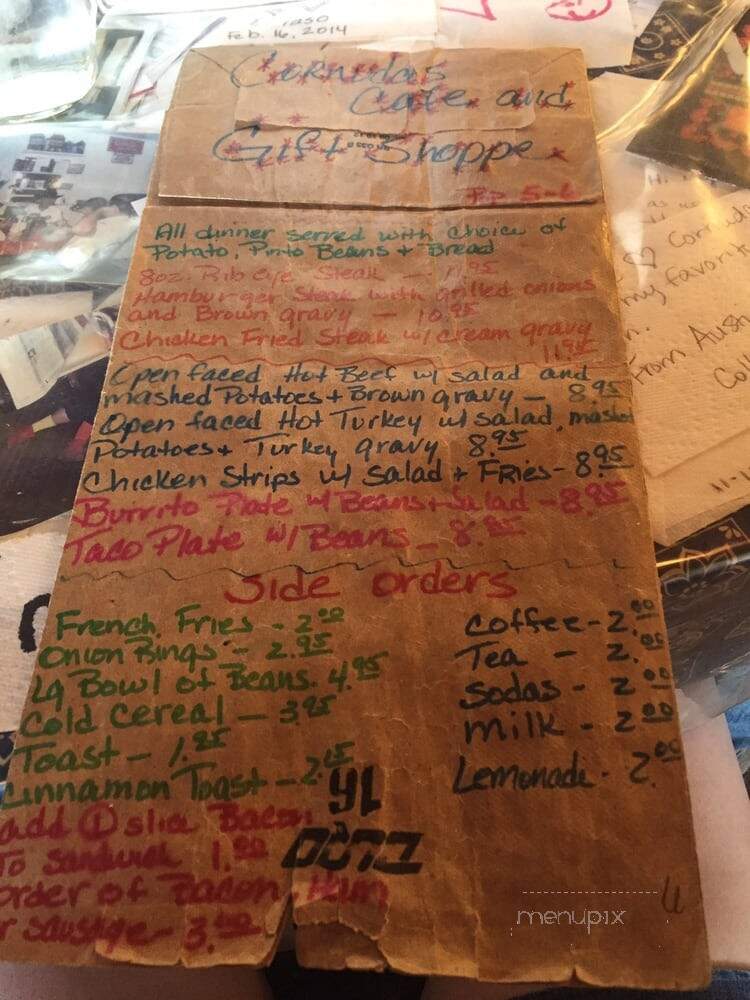 Feb. 16, 2014
Cornudas
Cafe and
Gift Shoppe
All dinner served with choice of
Potato, Pinto Beans + Bread
8oz. Rib eye Steak —
Hamburger Steak with grilled onions
and Brown gravy — 10.95
Chicken Fried Steak w/ cream gravy
11.95
Open faced Hot Beef w/ salad and
mashed Potatoes + Brown gravy — 8.95
Open faced Hot Turkey w/ salad, mashed
Potatoes + Turkey gravy 8.95
Chicken Strips w/ Salad + Fries - 8.95
Burrito Plate w/ Beans + Salad - 8.95
Taco Plate w/ Beans — 8.95
Side orders
French Fries - 2.00
Onion Rings - 2.95
Lg Bowl of Beans. 4.95
Cold Cereal — 3.95
Toast — 1.95
Cinnamon Toast —
add 1 slice Bacon
To Sandwich 1.00
order of Bacon, Ham
r sausage - 3.00
Coffee - 2.00
Tea - 2.00
Sodas - 2.00
milk - 2.00
Lemonade - 2.00
my favorit
From Aust
menupix